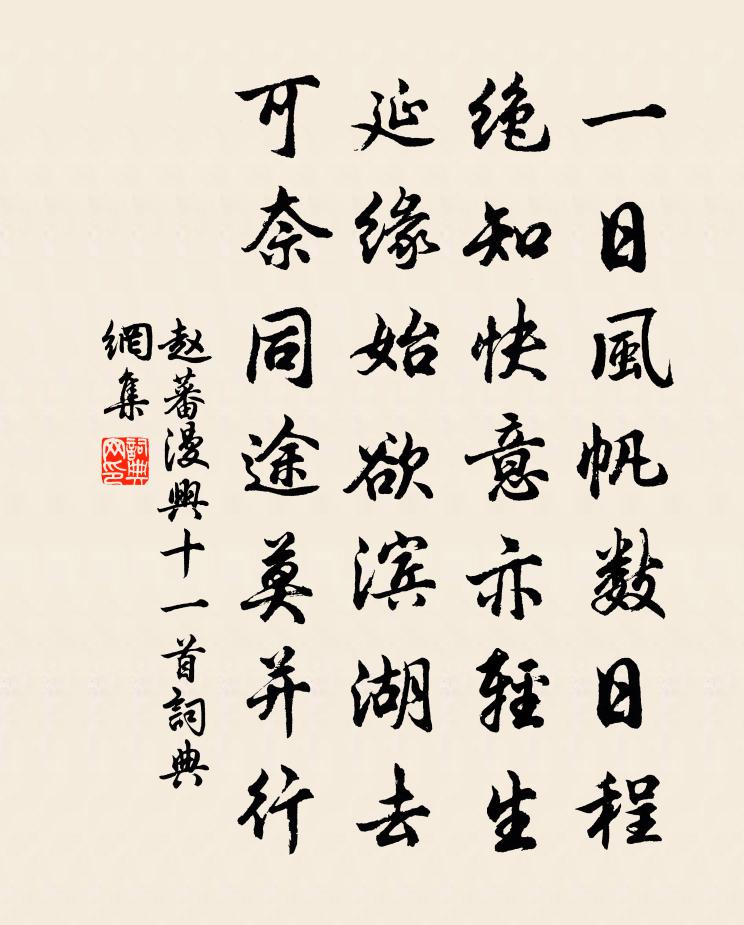 一日風帆数日程
绝知快意亦輕生
延缘始欲滨湖去
可奈同途莫并行
赵蕃漫興十一首詞典
網集
詞典
网印